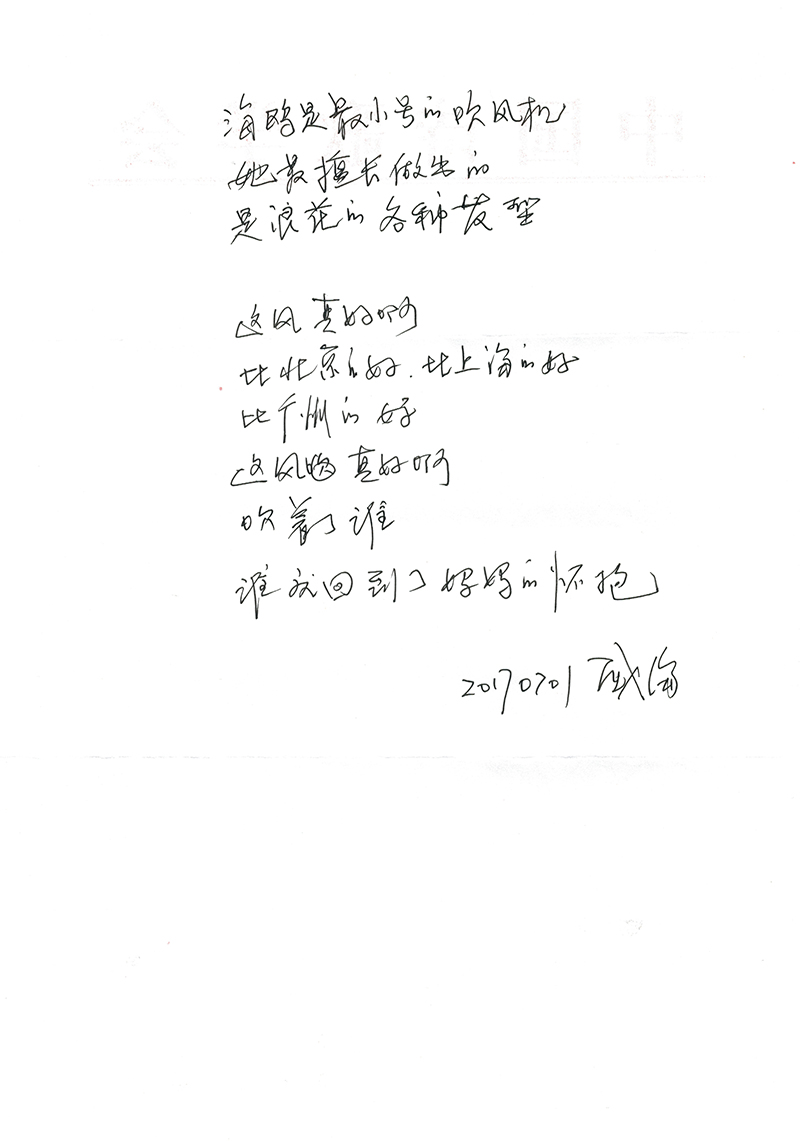 海鸥是最小号的吹风机
她最擅长做出的
是浪花的各种发型
这风真好啊
比北京的好.比上海的好
比广州的好
这风真好啊
吹着了谁
谁就回到了妈妈的怀抱
20170701 威海